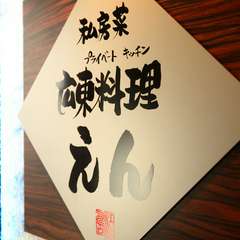 私房菜
プライベート キッチン
広東料理
えん